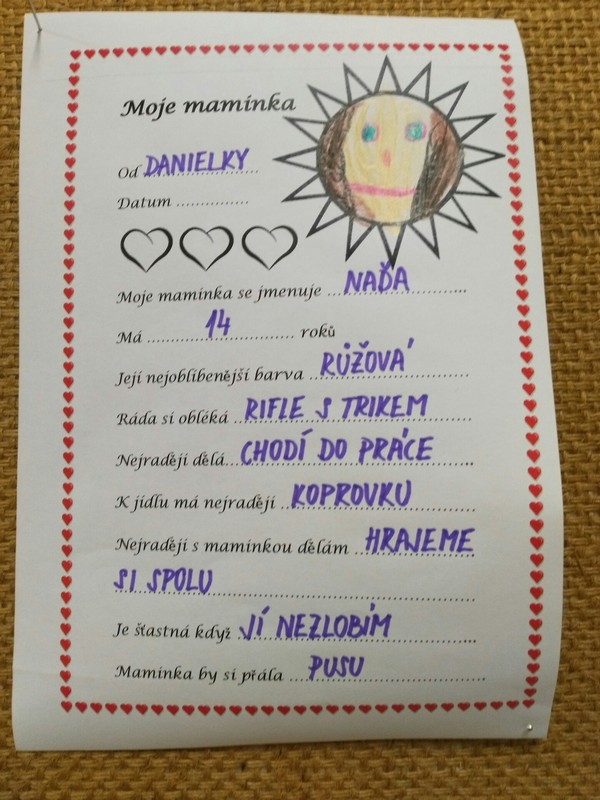 Moje maminka
Od DANIELKY
Datum ...............
Moje maminka se jmenuje ... NAĎA ...
Má ... 14 ... roků
Její nejoblíbenější barva ... RŮŽOVÁ
Ráda si obléká ... RIFLE S TRIKEM
Nejraději dělá... CHODÍ DO PRÁCE
K jídlu má nejraději ... KOPROVKU
Nejraději s maminkou dělám ... HRAJEME
SI SPOLU
Je šťastná když JÍ NEZLOBÍM
Maminka by si přála ... PUSU